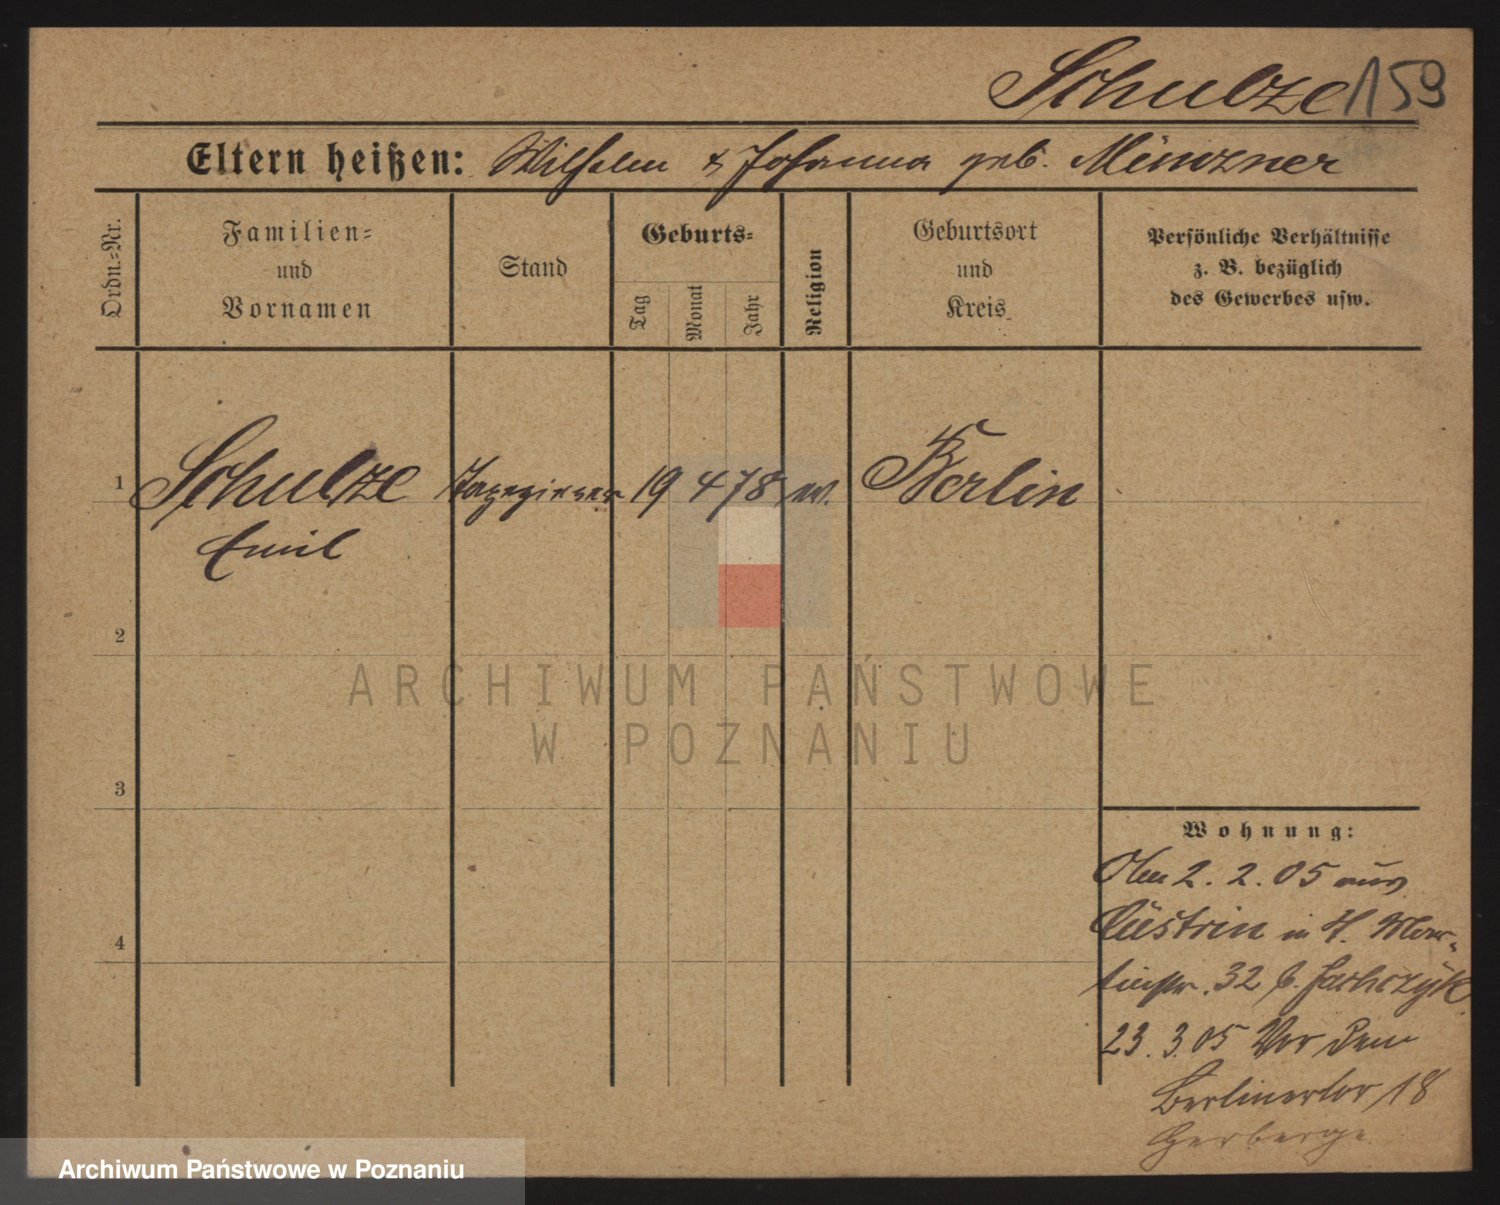 Schulze 159
Eltern heißen: Wilhelm & Johanna geb.
Ordn.-Nr.
Familien-
und
Vornamen
Stand
Geburts-
Tag
Monat
Jahr
Religion
Geburtsort
und
Kreis
Persönliche Verhältnisse
z. B. bezüglich
des Gewerbes usw.
1 Schulze Tapezierer 19 4 78 ev. Berlin
Emil
2
ARCHIWUM PAŃSTWOWE
W POZNANIU
3
4
Wohnung:
2. 2. 05 aus
Cüstrin in H. Mar-
tinstr. 32 b.
23. 3. 05 Vor dem
Berlinertor 18
Herberge
Archiwum Państwowe w Poznaniu